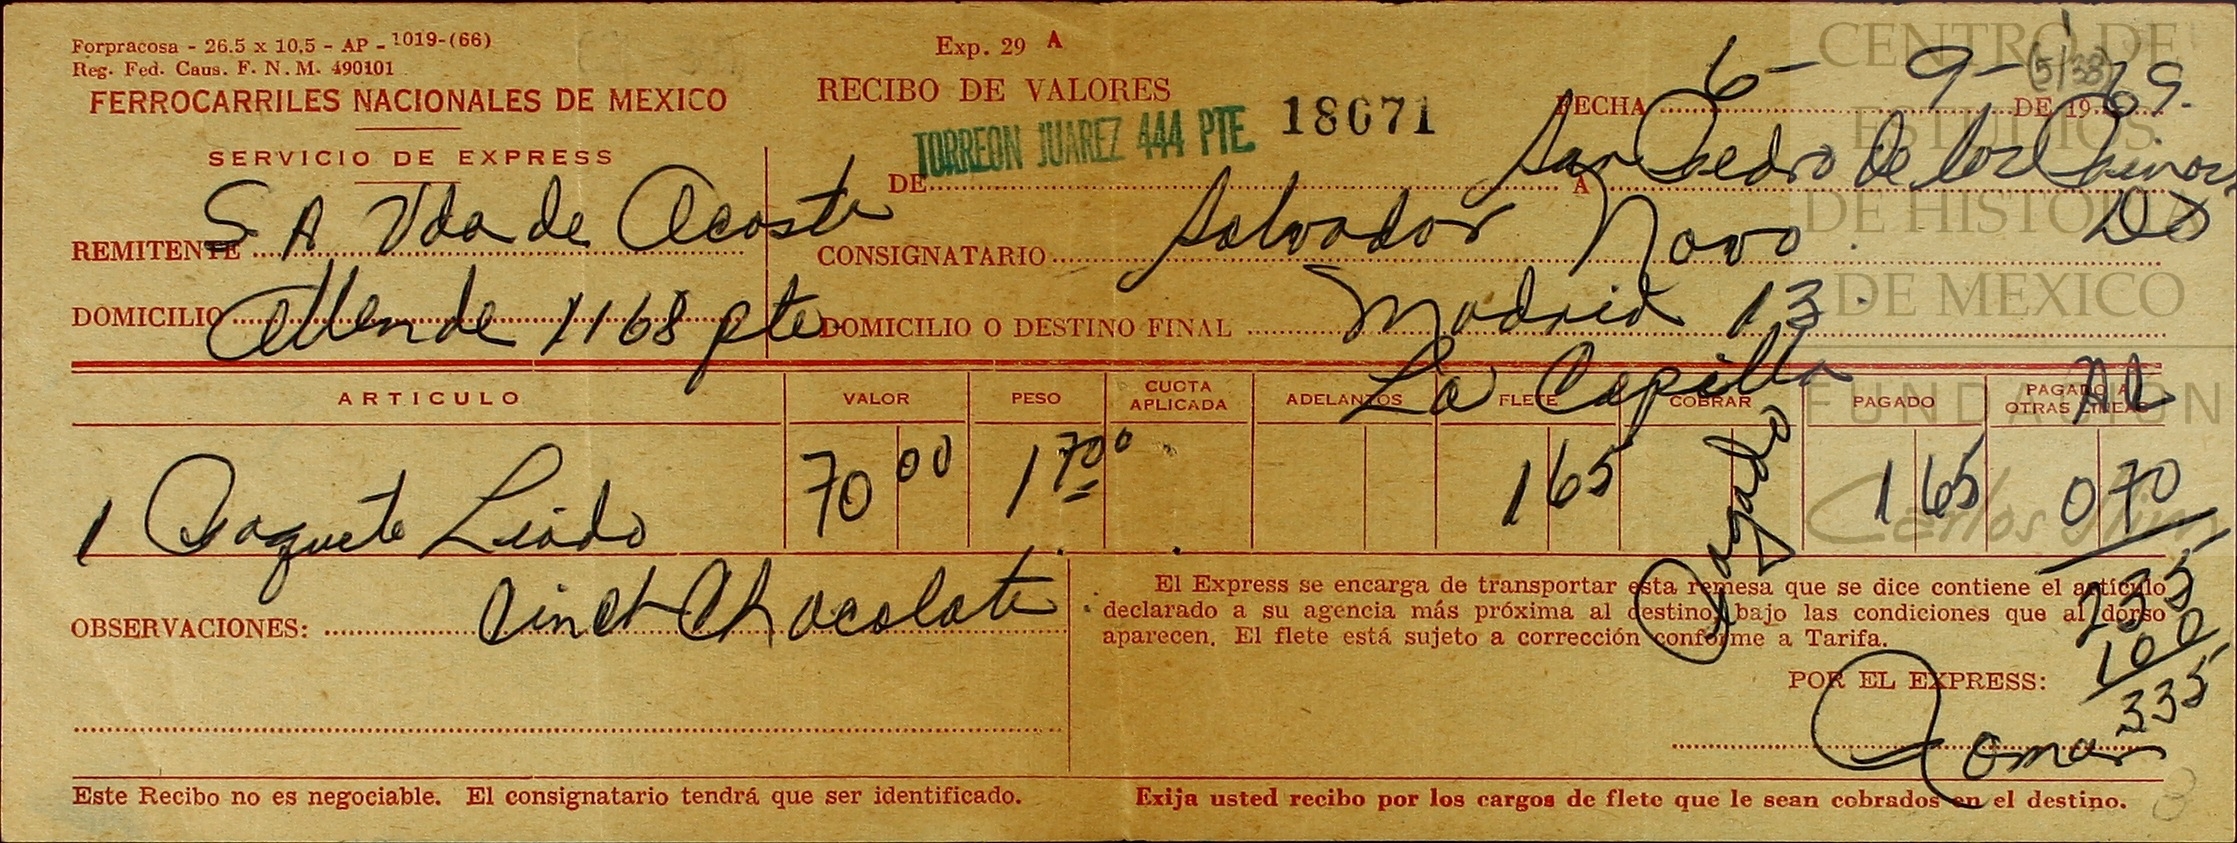 Forpracosa - 26.5 x 10,5 - AP - 1019-(66)
Reg. Fed. Caus. F. N. M. 490101
FERROCARRILES NACIONALES DE MEXICO
SERVICIO DE EXPRESS
Exp. 29 A
RECIBO DE VALORES
18671
FECHA 6 - 9 - DE 1969.
(5/33)
TORREON JUAREZ 444 PTE.
DE A San Pedro de los Pinos
REMITENTE S A Vda de Acosta
CONSIGNATARIO Salvador Novo
DOMICILIO Allende 1168 pte.
DOMICILIO O DESTINO FINAL Madrid 13.
La Capilla
ARTICULO VALOR PESO CUOTA APLICADA ADELANTOS FLETE COBRAR PAGADO PAGADO A OTRAS LINEAS
1 Paquete Liado 70 00 1 700 1 65 Pagado 1 65 0 70
235
100
335
OBSERVACIONES: Chocolate
El Express se encarga de transportar esta remesa que se dice contiene el artículo
declarado a su agencia más próxima al destino, bajo las condiciones que al dorso
aparecen. El flete está sujeto a corrección conforme a Tarifa.
POR EL EXPRESS:
Este Recibo no es negociable. El consignatario tendrá que ser identificado.
Exija usted recibo por los cargos de flete que le sean cobrados en el destino.
CENTRO DE
ESTUDIOS
DE HISTORIA
DE MEXICO
FUNDACION
Carlos Slim